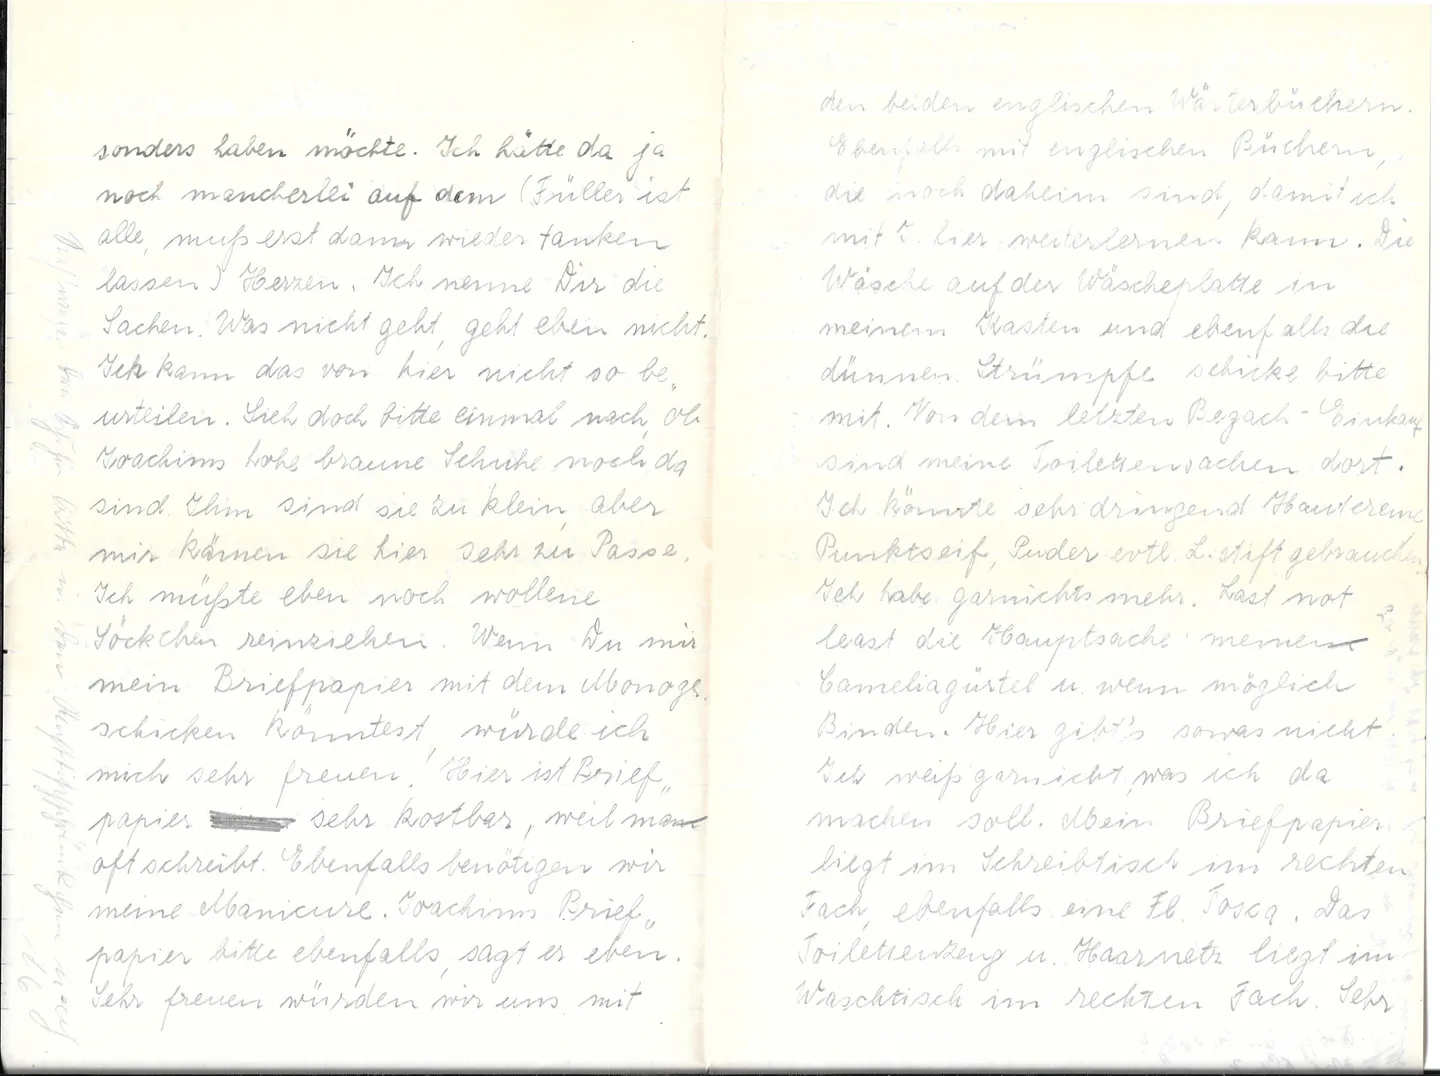 sonders haben möchte. Ich hätte da ja
noch mancherlei auf dem (Füller ist
alle, muß erst dann wieder tanken
lassen) Herzen. Ich nenne Dir die
Sachen. Was nicht geht, geht eben nicht.
Ich kann das von hier nicht so be„
urteilen. Sieh doch bitte einmal nach, ob
Joachims hohe braune Schuhe noch da
sind. Ihm sind sie zu klein, aber
mir kämen sie hier sehr zu Passe.
Ich müßte eben noch wollene
Söckchen reinziehen. Wenn Du mir
mein Briefpapier mit dem Monogr.
schicken könntest, würde ich
mich sehr freuen! Hier ist Brief„
papier sehr kostbar, weil man
oft schreibt. Ebenfalls benötigen wir
meine Manicure. Joachims Brief„
papier bitte ebenfalls, sagt er eben.
Sehr freuen würden wir uns mit
den beiden englischen Wörterbüchern.
Ebenfalls mit englischen Büchern,
die noch daheim sind, damit ich
mit hier weiterlernen kann. Die
Wäsche auf der Wäscheplatte in
meinem Kasten und ebenfalls die
dünnen Strümpfe schicke bitte
mit. Von dem letzten Bezach-Einkauf
sind meine Toilettensachen dort.
Ich könnte sehr dringend Hautcreme
Punktseif, Puder evtl. L.stift gebrauchen.
Ich habe garnichts mehr. Last not
least die Hauptsache meinen
Cameliagürtel u. wenn möglich
Binden. Hier gibt's sowas nicht
Ich weiß garnicht, was ich da
machen soll. Mein Briefpapier
liegt im Schreibtisch im rechten
Fach, ebenfalls eine Fl. Tosca. Das
Toilettenzeug u. Haarnetz liegt im
Waschtisch im rechten Fach. Sehr